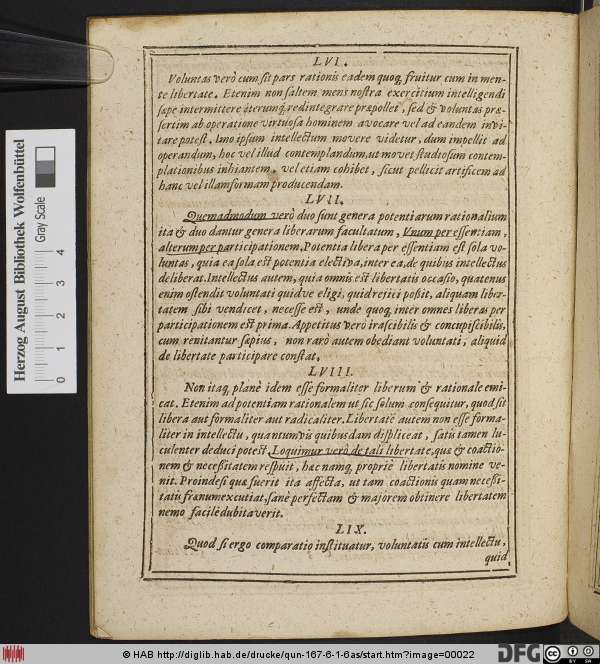 LVI.
Voluntas verò cum sit pars rationis eadem quoq; fruitur cum in men-
te libertate. Etenim non saltem mens nostra exercitium intelligendi
sæpe intermittere iterumq́; redintegrare præpollet, sed & voluntas præ-
sertim ab operatione virtuosa hominem avocare vel ad eandem invi-
tare potest, Imo ipsum intellectum movere videtur, dum impellit ad
operandum, hoc vel illud contemplandum, ut movet studiosum contem-
plationibus inhiantem, vel etiam cohibet, sicut pellicit artificem ad
hanc vel illam formam producendam.
LVII.
Quemadmodum verò duo sunt genera potentiarum rationalium
ita & duo dantur genera liberarum facultatum, Unum per essentiam,
alterum per participationem. Potentia libera per essentiam est sola vo-
luntas, quia ea sola est potentia electiva, inter ea, de quibus intellectus
deliberat. Intellectus autem, quia omnis est libertatis occasio, quatenus
enim ostendit voluntati quidve eligi, quid rejici poßit, aliquam liber-
tatem sibi vendicet, necesse est, unde quoq; inter omnes liberas per
participationem est prima. Appetitus verò irascibilis & concupiscibilis,
cum renitantur sæpius, non rarò autem obediant voluntati, aliquid
de libertate participare constat.
LVIII.
Non itaq; planè idem esse formaliter liberum & rationale emi-
cat. Etenim ad potentiam rationalem ut sic solum consequitur, quod sit
libera aut formaliter aut radicaliter. Libertatē autem non esse forma-
liter in intellectu, quantumvis quibusdam displiceat, satis tamen lu-
culenter deduci potest. Loquimur verò de tali libertate, quæ & coactio-
nem & neceßitatem respuit, hæc namq; propriè libertatis nomine ve-
nit. Proinde si quæ fuerit ita affecta, ut tam coactionis quam neceßi-
tatis frænum excutiat, sanè perfectam & majorem obtinere libertatem
nemo facilè dubitaverit.
LIX.
Quod si ergo comparatio instituatur, voluntatis cum intellectu,
quid
Herzog August Bibliothek Wolfenbüttel
Gray Scale
0 1 2 3 4
© HAB http://diglib.hab.de/drucke/qun-167-6-1-6as/start.htm?image=00022
DFG
CC BY SA